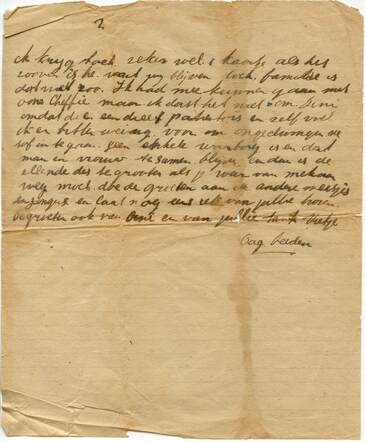 2
ik kryg toch zeker wel 1 kaartje als het
zoover is he. want wy blijven toch familie is
dat niet zoo. Ik had mee kunnen gaan met
oome Cheffie maar ik dorst het niet om Dini
omdat die een dreef patient is en zelf voel
ik er bitter weinig voor om ongedwongen de
in te gaan. geen enkele is en dat
man en vrouw te samen blijven en dan is de
ellende des te grooter als je waar van mekaar
weg moet. doe de groeten aan de andere meisjes
en jongens en laat nog eens iets van jullie hooren
de groeten ook van Ome en van jullie tante
Dag beiden